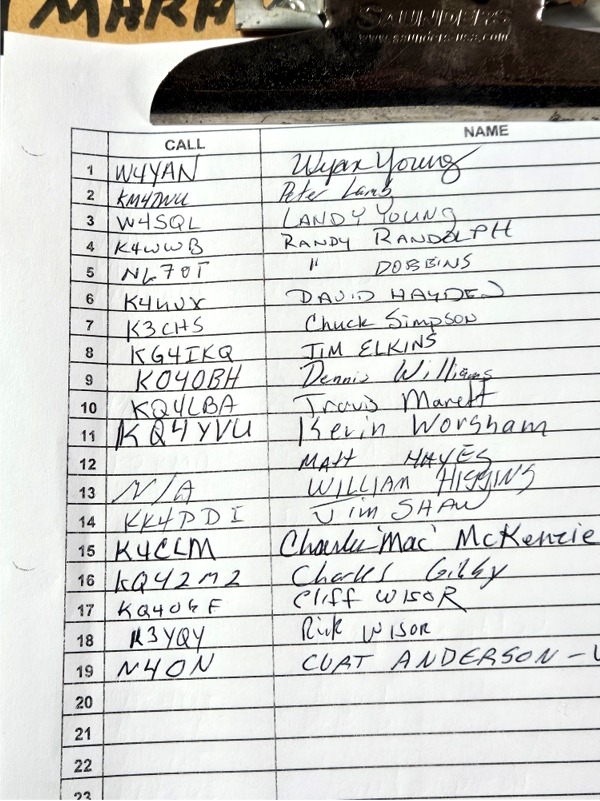 MARA
SAUNDERS
www.saunders-usa.com
CALL NAME
1 W4YAN Wyan Young
2 Peter Lamb
3 W4SQL LANDY YOUNG
4 K4WWB RANDY RANDOLPH
5 NL7OT " DOBBINS
6 DAVID HAYDEN
7 K3CHS Chuck Simpson
8 KG4IKQ JIM ELKINS
9 KO4OBH Dennis Williams
10 KQ4LBA Travis Marett
11 KQ4YVU Kevin Worsham
12 MATT HAYES
13 N/A WILLIAM HIGGINS
14 KK4PDI Jim SHAW
15 K4CLM Charles "Mac" McKenzie
16 KQ42M2 Charles Gilby
17 Cliff WISOR
18 K3YQY Rick WISOR
19 N4ON CURT ANDERSON –
20
21
22
23